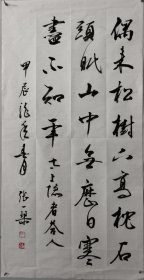 偶来松樹下高枕石
頭眠山中無歷日寒
盡不知年 太上隐者答人
甲辰